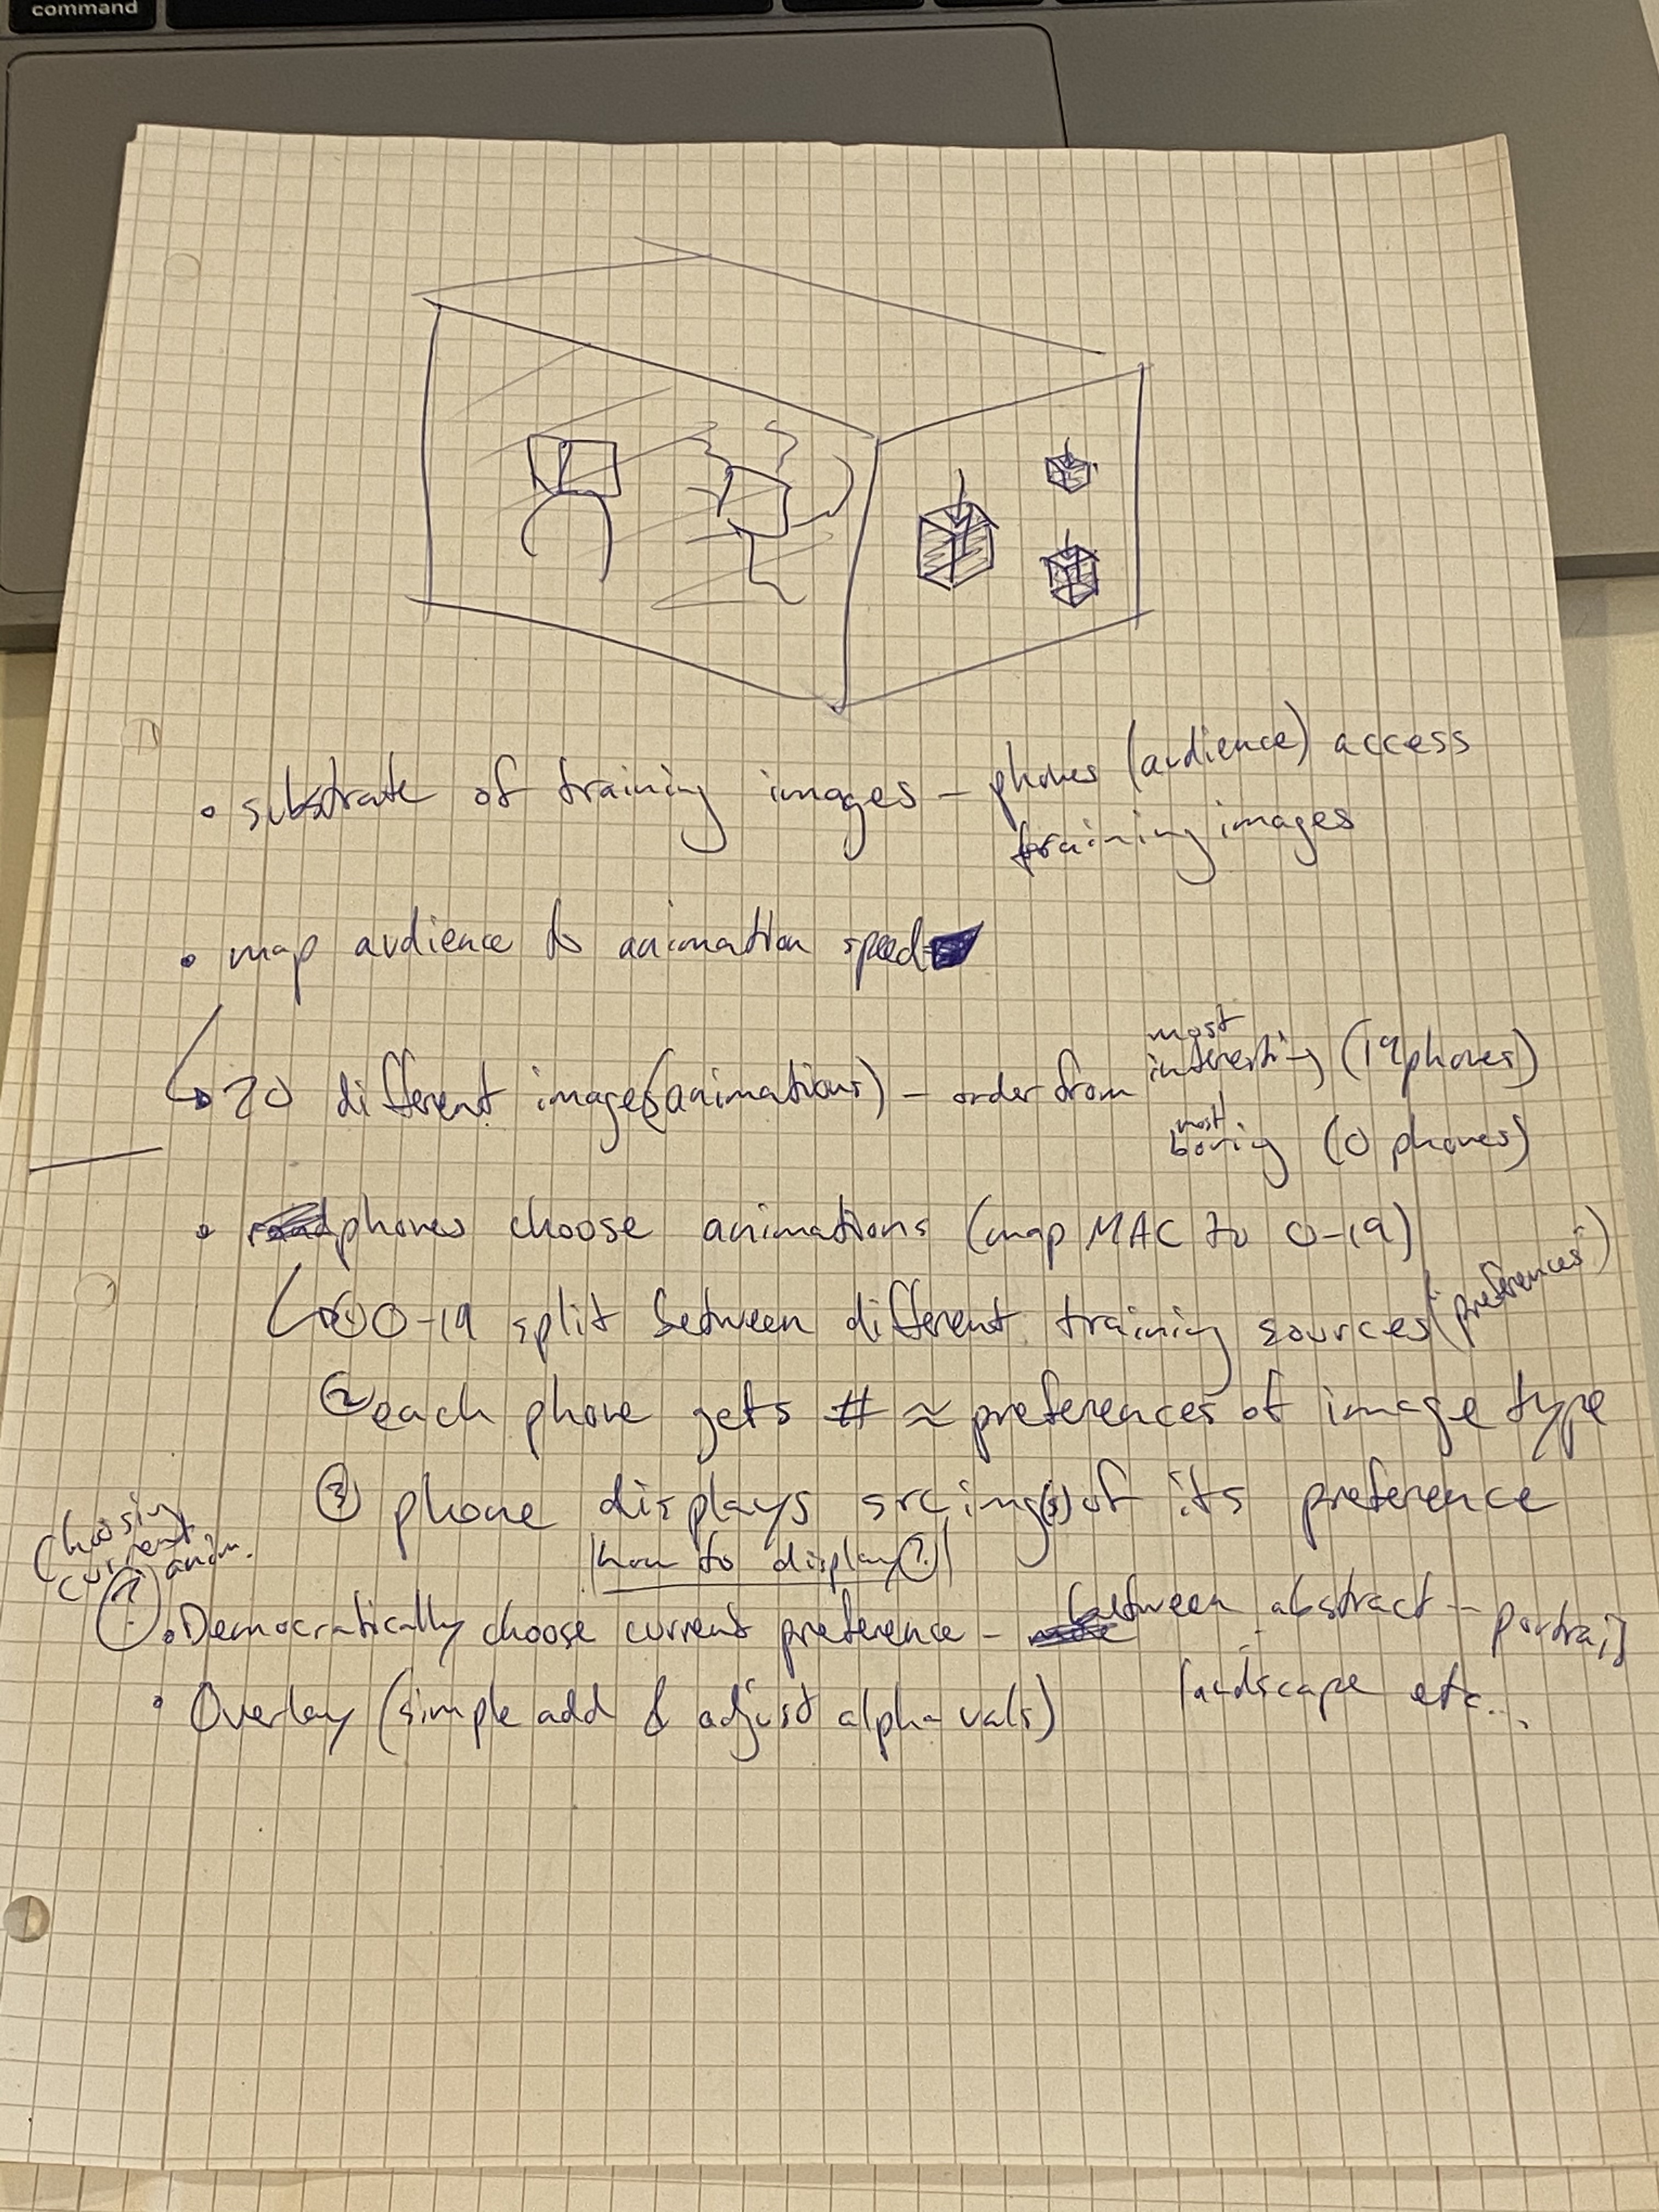 command
• substrate of training images – phones (audience) access
training images
• map audience to animation speed
↳ 20 different images (animations) – order from most interesting (19 phones)
most boring (0 phones)
• phones choose animations (map MAC to 0-19)
↳ ① 0-19 split between different training sources ("preferences")
② each phone gets # ≈ preferences of image type
③ phone displays src img(s) of its preference
how to display(?)
choosing current anim.
(?)
• Democratically choose current preference – between abstract – portrait
landscape etc...
• Overlay (simple add & adjust alpha vals)